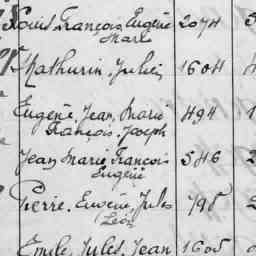 Louis François Eugène 2074
Marc
Mathurin, Julien 1604
Eugène, Jean, Marie 494
François, Joseph
Jean Marie François 546
Eugène
Pierre, Eugène, Jules 798
Léon
Emile, Jules, Jean 1605